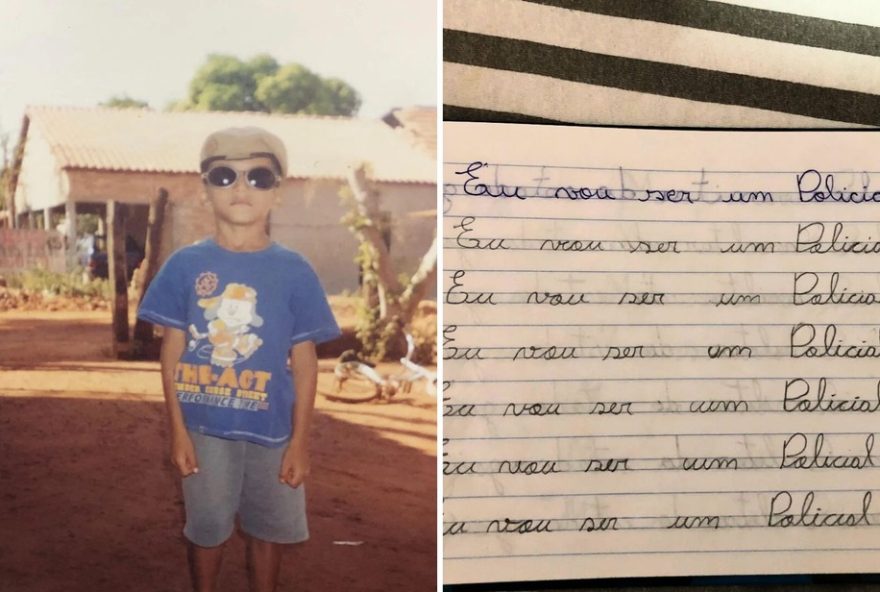 THE-ACT
Eu vou ser um Policia
Eu vou ser um Policial
Eu vou ser um Policial
Eu vou ser um Policial
Eu vou ser um Policial
Eu vou ser um Policial
u vou ser um Policial